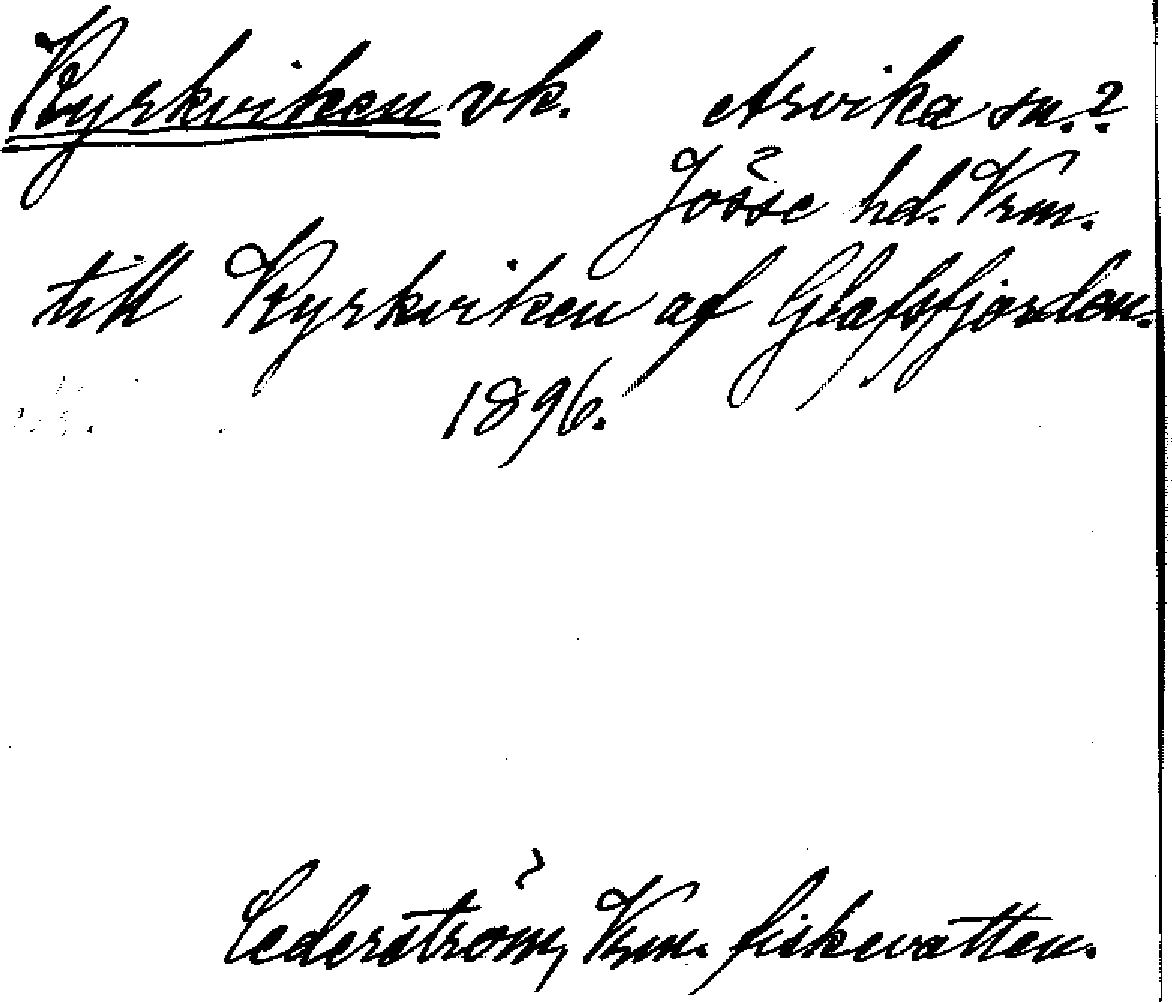 Kyrkviken vk. Arvika sn.?
Jösse hd. Vrm.
till Kyrkviken af Glafsfjorden.
1896.
Cederström, Vrm. fiskevatten.